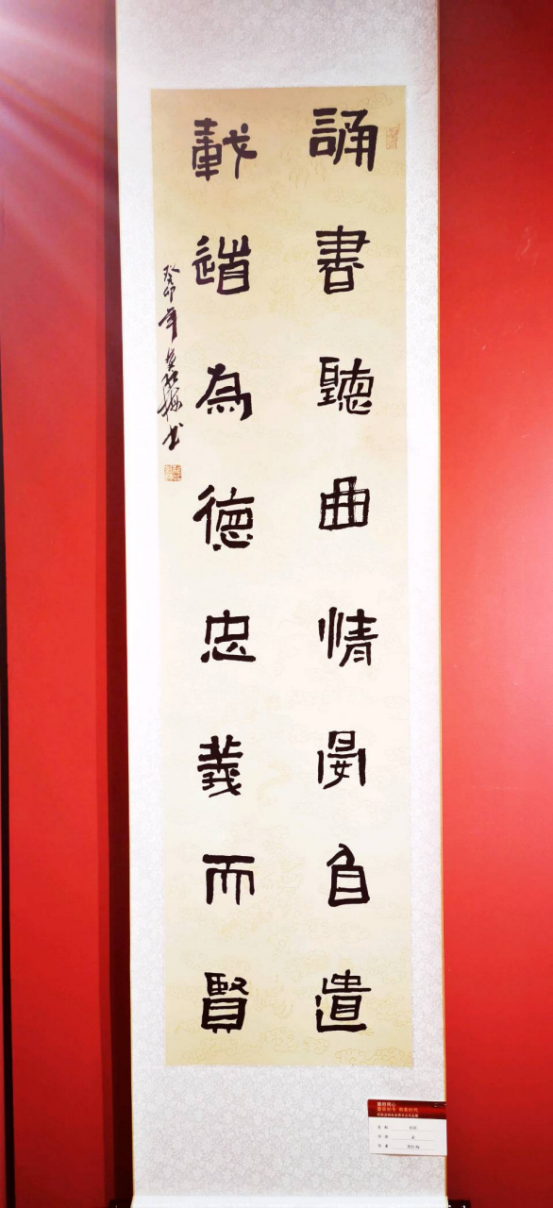 誦書聽曲情晏自遣
載道為德忠義而賢
癸卯年 书